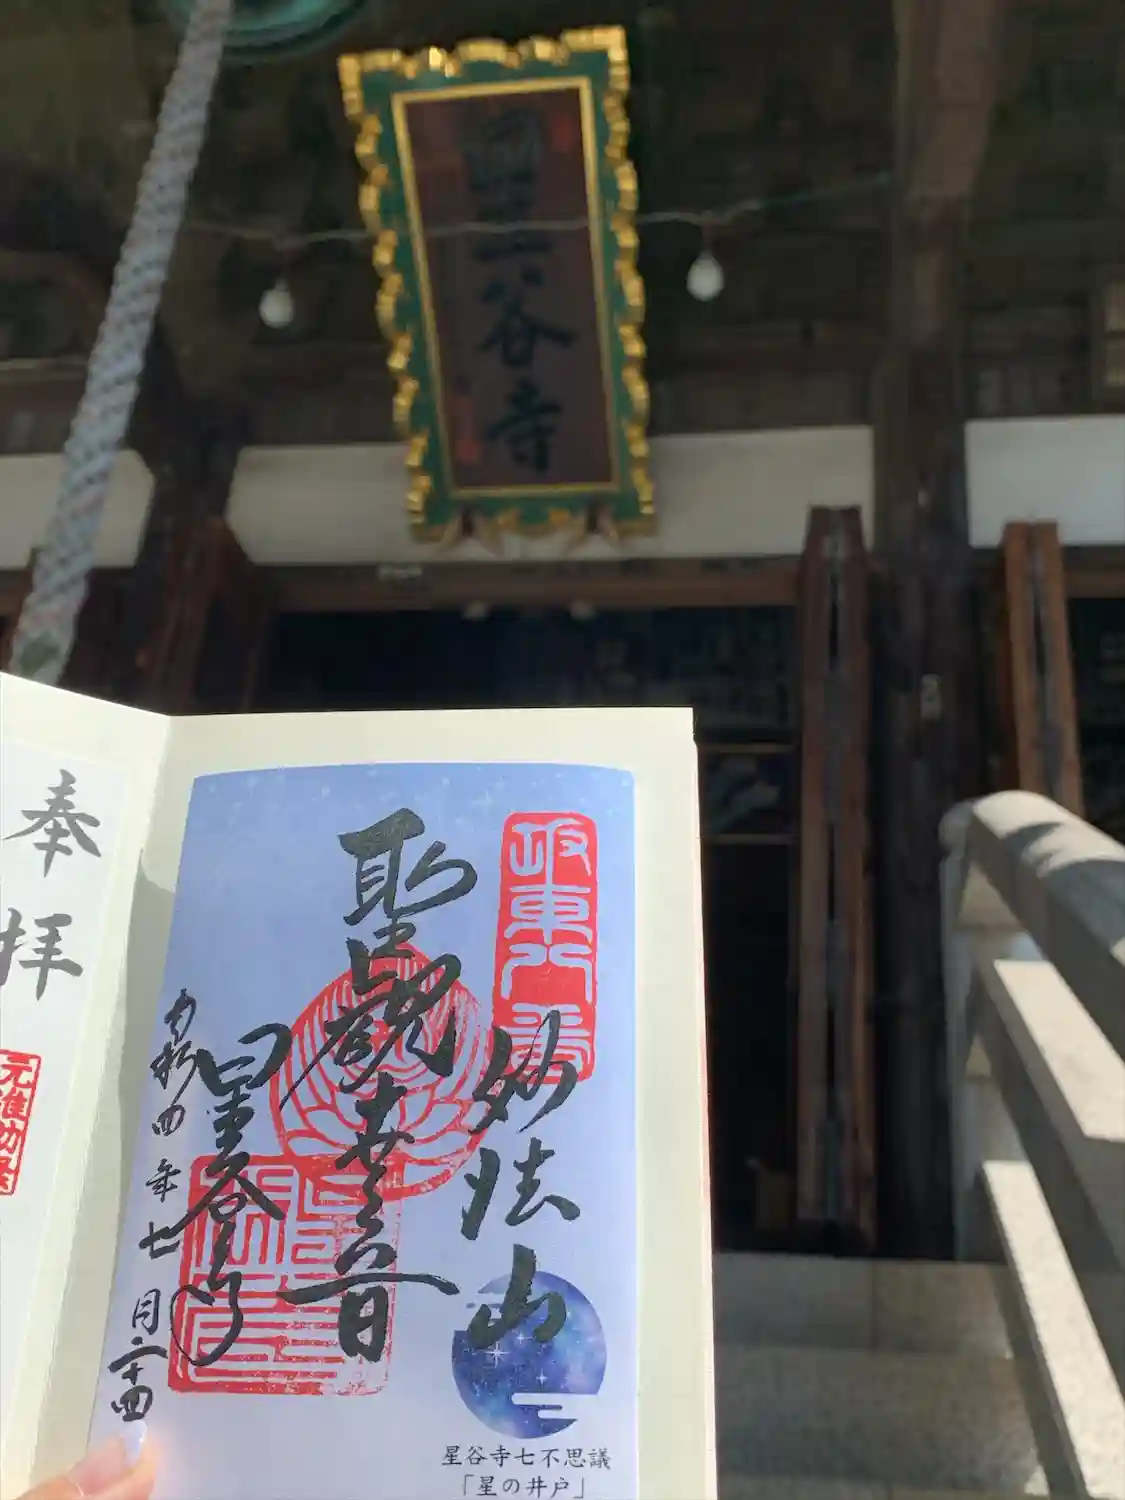 星谷寺
坂東八番
妙法山
聖観世音
星谷寺
令和四年七月二十四
星谷寺七不思議
「星の井戸」
奉拝